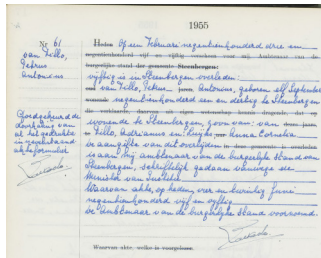 1955
Nr 61
van Tillo,
Petrus
Antonius
Goedgekeurd de
doorhaling van
al het gedrukte
in nevenstaand
akteformulier
Heden Op een Februari negentienhonderd drie en
negentienhonderd vijf en vijftig verscheen voor mij Ambtenaar van de
burgerlijke stand der gemeente Steenbergen:
vijftig is in Steenbergen overleden:
van Tillo, Petrus Antonius, geboren elf September
negentienhonderd een en dertig te Steenbergen
wonende te Steenbergen, zoon van: van
Tillo, Adrianus en Anna Cornelia
De aangifte van dit overlijden
is aan mij ambtenaar van de burgerlijke stand van
Steenbergen, schriftelijk gedaan vanwege de
Minister van Justitie
Waarvan akte, op heden, vier en twintig Juni
negentienhonderd vijf en vijftig
De Ambtenaar van de burgerlijke stand voornoemd.
Waarvan akte, welke is voorgelezen.